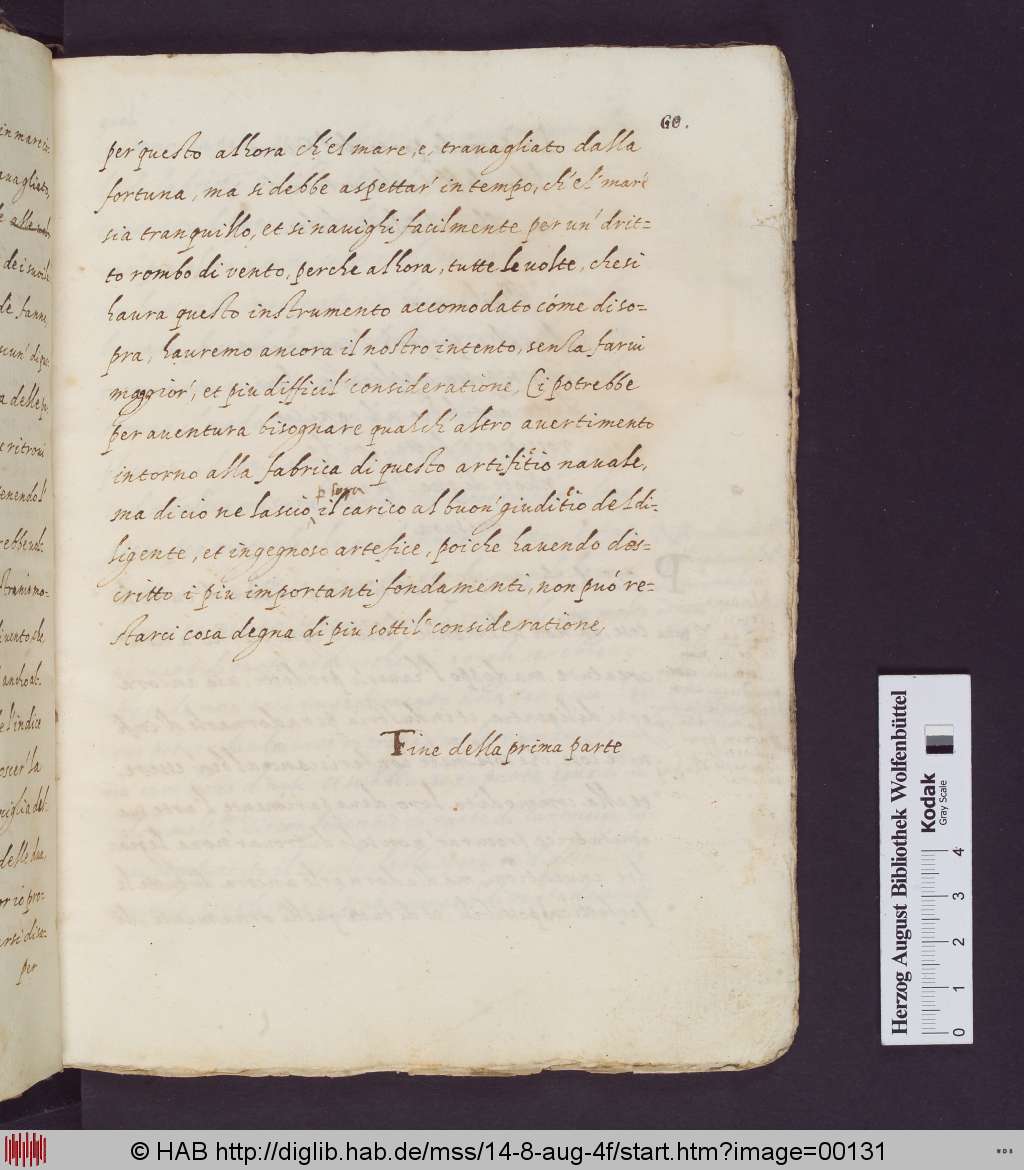 60.
per questo alhora ch'el mare, e, trauagliato dalla
fortuna, ma si debbe aspettar' in tempo, ch'el' mare
sia tranquillo, et si nauighi facilmente per un' drit=
to rombo di vento, perche alhora, tutte le uolte, che si
haura questo instrumento accomodato cóme di so=
pra, hauremo ancora il nostro intento, senza farui
maggior', et piu difficil' consideratione, Ci potrebbe
per auentura bisognare qualch' altro auertimento
intorno alla fabrica di questo artifitio nauale,
ma di cio ne lascio il carico al buon' giuditio del di=
ligente, et ingegnoso artefice, poiche hauendo des=
critto i piu importanti fondamenti, non può re=
starci cosa degna di piu sottil' consideratione,
Fine della prima parte
in mare
auagliato,
de fanne,
e ritroui
enendo l'
l'indice
oscer' la
per
Herzog August Bibliothek Wolfenbüttel
Kodak
Gray Scale
0 1 2 3 4
© HAB http://diglib.hab.de/mss/14-8-aug-4f/start.htm?image=00131